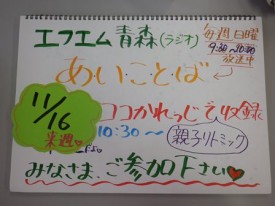 エフエム青森(ラジオ)
毎週日曜
9:30~10:00
放送中
あい・こ・と・ば
11/16
来週
ココかれっじで収録
10:30~
親子リトミック
みなさま、ご参加下さい♥